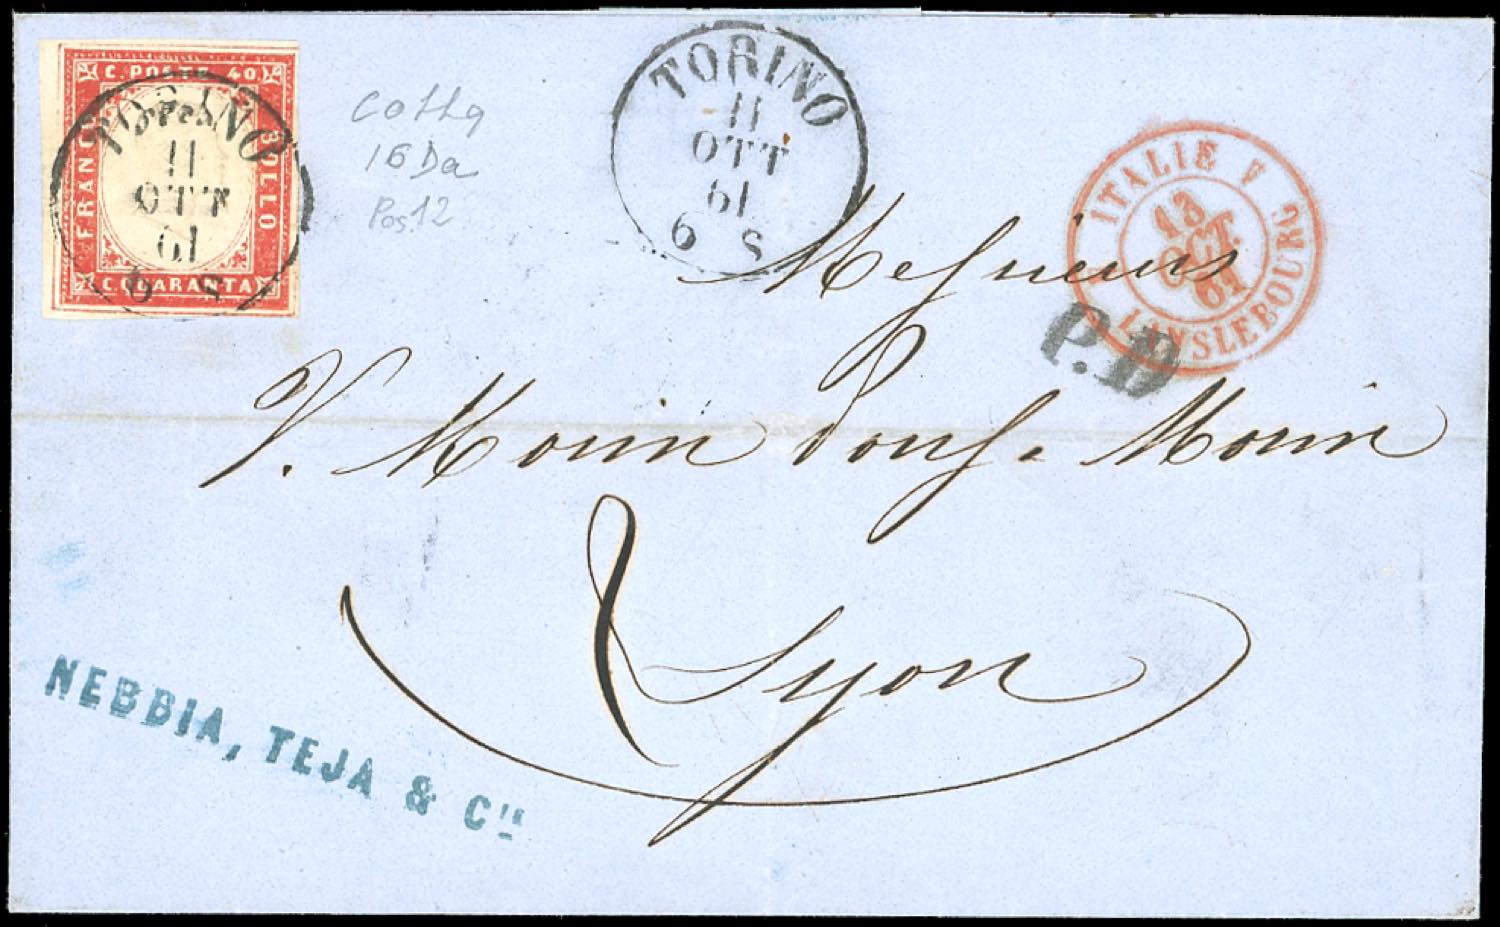 C. POSTE 40.
FRANCO
BOLLO
C. QUARANTA
TORINO
11
OTT
61
6 S
cotta
16 Da
Pos. 12
TORINO
11
OTT
61
6 S
ITALIE
13
OCT
61
LANSLEBOURG
P.D
Messieurs
V. Morin Morin
Lyon
NEBBIA, TEJA & Cⁱᵉ